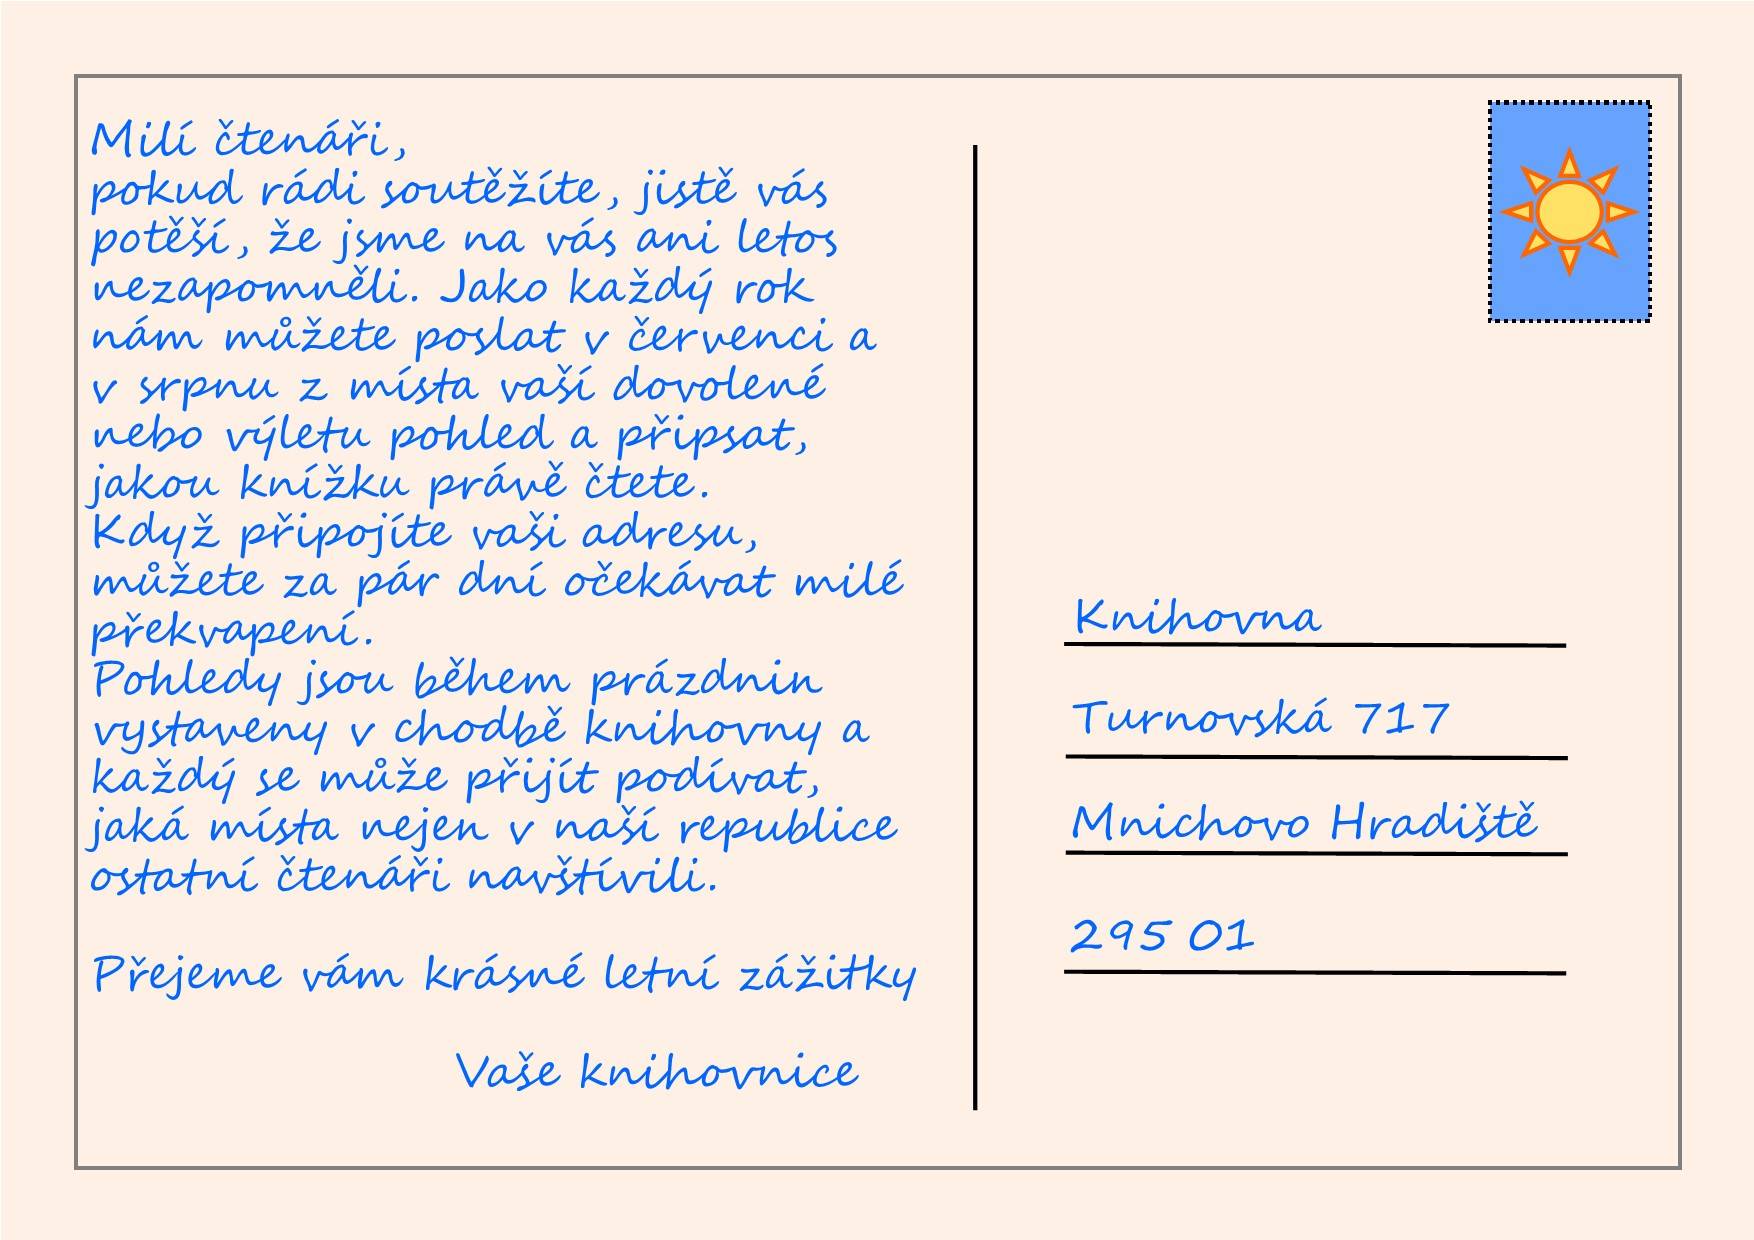 Milí čtenáři,
pokud rádi soutěžíte, jistě vás
potěší, že jsme na vás ani letos
nezapomněli. Jako každý rok
nám můžete poslat v červenci a
v srpnu z místa vaší dovolené
nebo výletu pohled a připsat,
jakou knížku právě čtete.
Když připojíte vaši adresu,
můžete za pár dní očekávat milé
překvapení.
Pohledy jsou během prázdnin
vystaveny v chodbě knihovny a
každý se může přijít podívat,
jaká místa nejen v naší republice
ostatní čtenáři navštívili.
Přejeme vám krásné letní zážitky
Vaše knihovnice
Knihovna
Turnovská 717
Mnichovo Hradiště
295 01